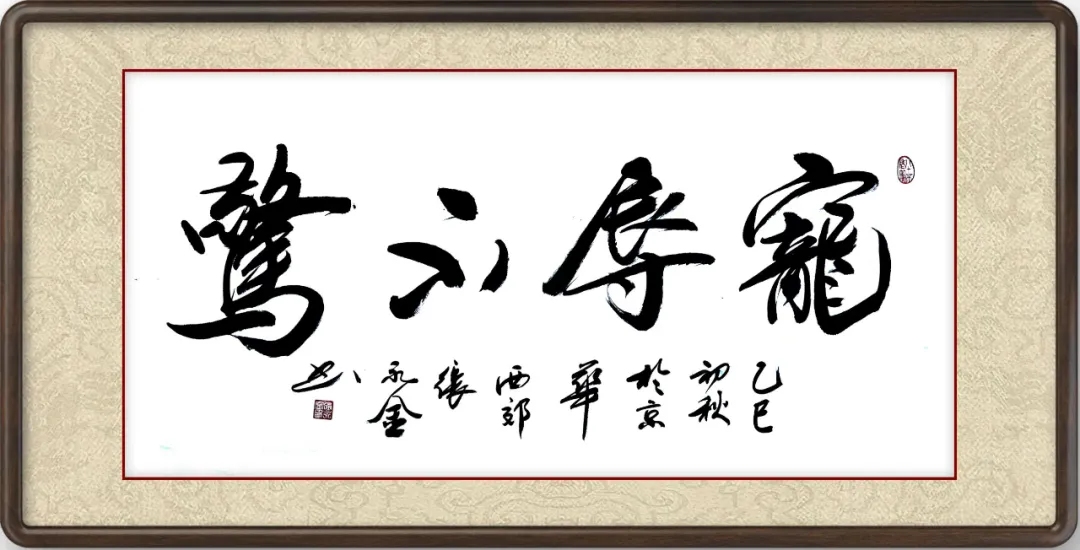 寵辱不驚
乙巳初秋於京華西郊張永金書